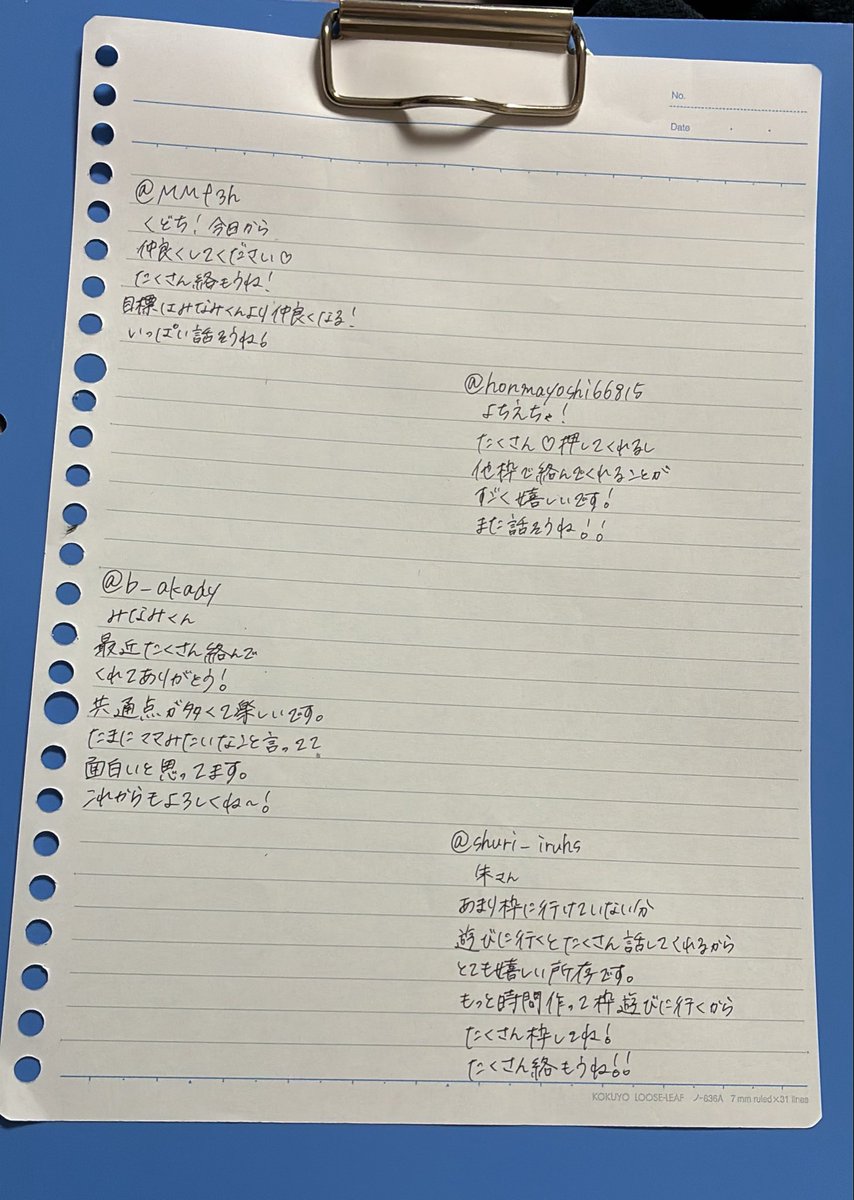 No.
Date
@MMf3h
くどち！今日から
仲良くしてください♡
たくさん絡もうね！
目標はみなみくんより仲良くなる！
いっぱい話そうね！
@honmayoshi66815
よちえちゃ！
たくさん♡押してくれるし
他枠で絡んでくれることが
すごく嬉しいです！
また話そうね！！
@b_akady
みなみくん
最近たくさん絡んで
くれてありがとう！
共通点が多くて楽しいです。
たまにママみたいなこと言ってて
面白いと思ってます。
これからもよろしくね〜！
@shuri_iruhs
朱さん
あまり枠に行けていない分
遊びに行くとたくさん話してくれるから
とても嬉しい所存です。
もっと時間作って枠遊びに行くから
たくさん枠してね！
たくさん絡もうね！！
KOKUYO LOOSE-LEAF ノ-836A 7 mm ruled×31 lines